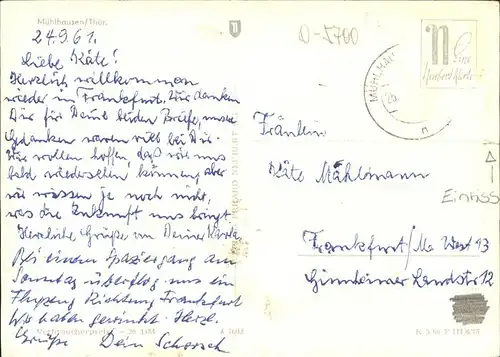 Mühlhausen/Thür.
24.9.61.
Liebe Käte!
Herzlich willkommen
wieder in Frankfurt. Wir danken
Dir für Deine beiden Briefe, unsere
Gedanken waren viel bei Dir.
Wir wollen hoffen, daß wir uns
bald wiedersehen können, aber
wir wissen ja noch nicht,
was die Zukunft uns bringt.
Herzliche Grüße von Deiner
Bei einem Spaziergang am
Sonntag überflog uns ein
Flugzeug Richtung Frankfurt
Wir haben gewinkt. Herzl.
Grüße Dein Schorsch
Verbraucherpreis
A 7602
0-5700
MÜHLHAU
Fräulein
Käte Mühlmann
Frankfurt/M. West 13
Ginnheimer Landstr 12
Einriss